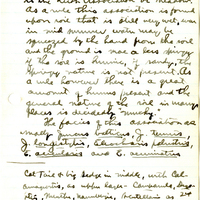 is the
As a rule this association is found
upon soil that is still very wet, even
in mid summer water may be
squeezed by the hand from the soil
and the ground is more or less springy
if the soil is humic, if sandy, the
springy nature is not present. As
a rule however there is a great
amount of humus present and the
general nature of the soil in many
places is decidedly mucky.
The facies of this association are
mostly Juncus balticus, J. tenuis,
J. longistylis, Eleocharis palustris,
and E. acuminatus
Cat Tail & big sedge in middle, with Cal-
amagrostis, as upper layer - Campanula,
Mentha, Scutellaria as